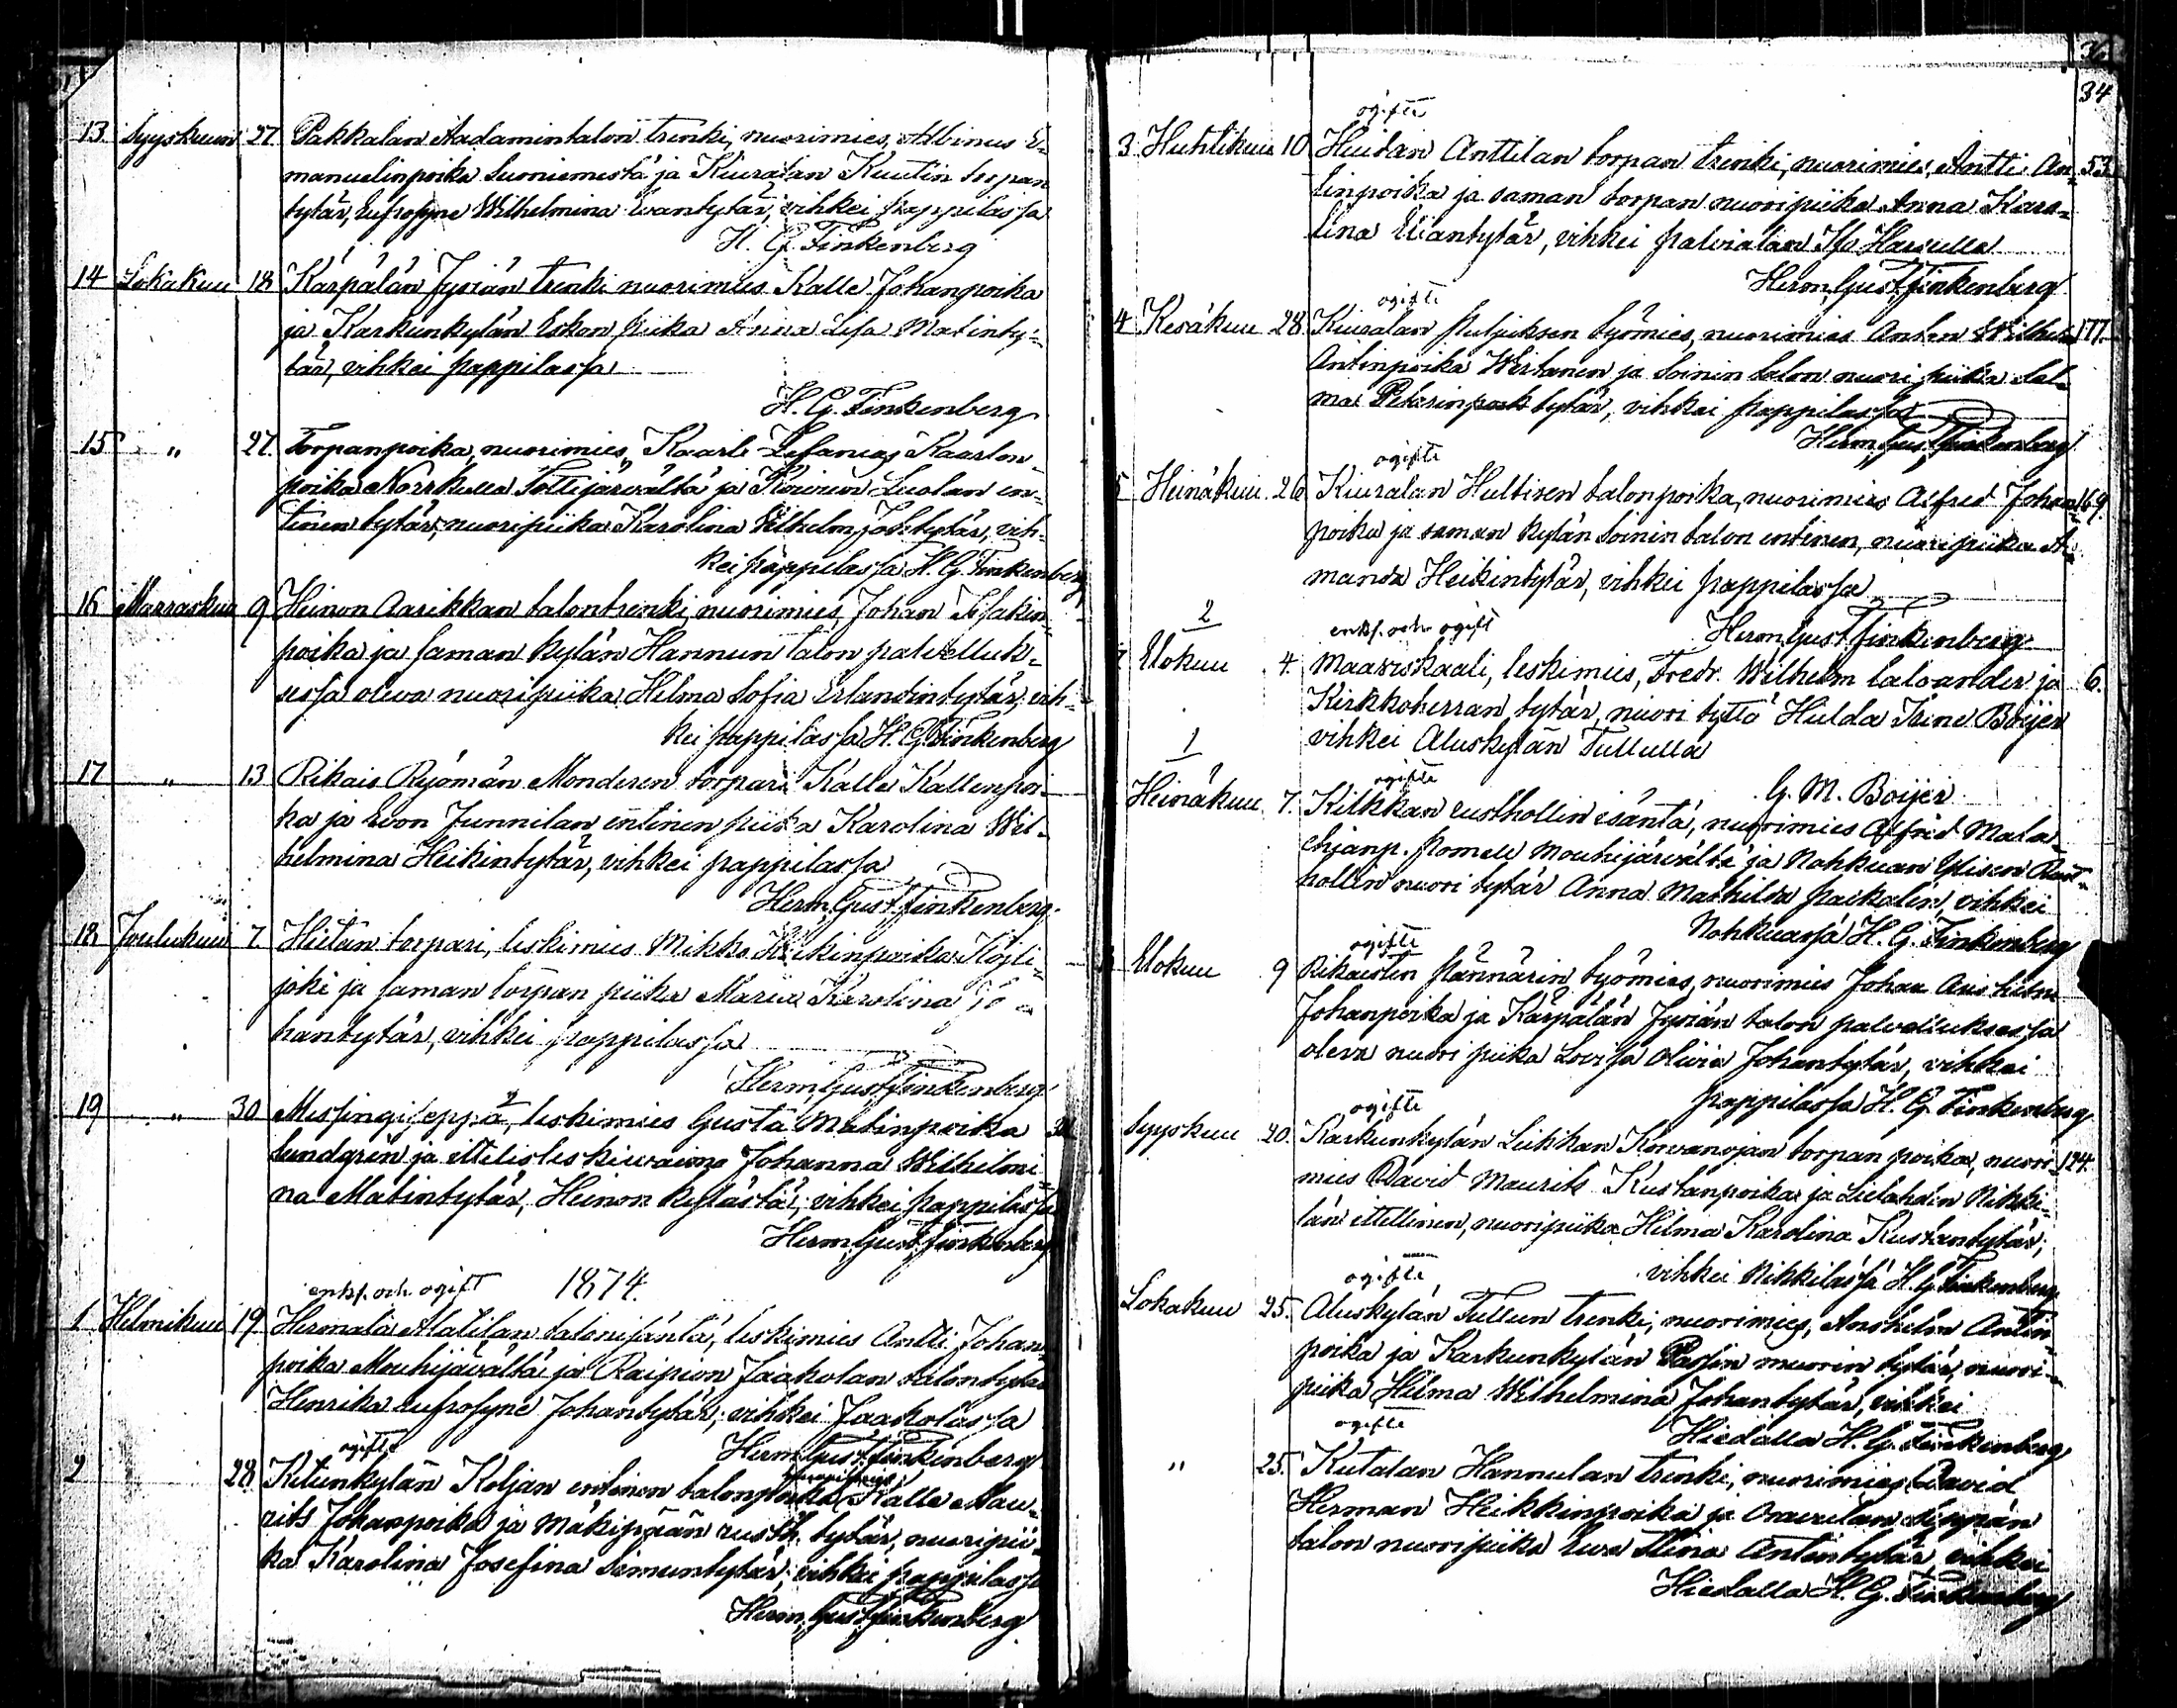 13. Syyskuun 27. Pakkalan Aadamintalon trenki, nuorimies, Albinus E-
manuelinpoika Suoniemestä ja Kiuralan Kuutin torpan
tytär, Eufrosyne Wilhelmina Iivantytär, vihkei pappilassa
H. G. Finkenberg
14 Lokakuu 18 Kärpälän Jyriän trenki nuorimies Kalle Johanpoika
ja Karkunkylän Eskon piika Anna Lisa Matinty-
tär, vihkei pappilassa
H. G. Finkenberg
15 " 27. Torpanpoika, nuorimies, Kaarle Kaarlon-
poika Tottijärvältä ja Luolan en-
tinen tytär, nuoripiika Karolina Wilhelm. Joh. tytär, vih-
kei pappilassa H. G. Finkenberg
16 Marraskuu 9 Heinon Aarikkan talontrenki, nuorimies, Johan Isakin-
poika ja saman kylän Hannun talon palvelluk-
sessa oleva nuoripiika Helma Sofia Erlandintytär, vih-
kei pappilassa H. G. Finkenberg
17 " 13. Rikais Ryömän Monderen torpari Kalle Kallenpoi-
ka ja Junnilan entinen piika Karolina Wil-
helmina Heikintytär, vihkei pappilassa
Herm. Gust. Finkenberg.
18 Joulukuu 7. torpari, leskimies Mikko Heikinpoika
joki ja saman torpan piika Maria Karolina Jo-
hantytär, vihkei pappilassa
Herm. Gust. Finkenberg
19 " 30 Messingiseppä, leskimies Gusta Matinpoika
Lundgrén ja leskivaimo Johanna Wilhelmi-
na Matintytär, Heinon kylästä, vihkei pappilassa
Herm. Gust. Finkenberg
enkl. och ogift 1874.
1 Helmikuu 19. Alatilan talonisäntä, leskimies Antti Johan-
poika Mouhijärvältä ja Raipion Jaakolan talontytär
Henrika Eufrosyne Johantytär, vihkei Jaakolassa
Herm. Gust. Finkenberg
ogifte
2 28. Kutunkylän Koljan entinen talonpoika Kalle Mau-
rits Johanpoika ja Mäkipään rusth. tytär, nuoripii-
ka Karolina Josefina Simuntytär, vihkei pappilassa
Herm. Gust. Finkenberg
34
ogifte
3 Huhtikuu 10 Anttilan torpan trenki, nuorimies, Antti An- 53.
tinpoika ja saman torpan nuoripiika Anna Karo-
lina vihkei
Herm. Gust. Finkenberg
ogifte
4 Kesäkuu 28. Kiuralan työmies, nuorimies Anton Wilhelm 177.
Antinpoika Wirtanen ja Soinin talon nuori piika Sal-
ma tytär, vihkei pappilassa
Herm. Gust. Finkenberg
ogifte
5 Heinäkuu 26 Kiuralan Hultisen talonpoika, nuorimies Alfred Johan- 169.
poika ja saman kylän Soinin talon entinen, nuoripiika A-
manda Heikintytär, vihkei pappilassa
Herm. Gust. Finkenberg
2 enkl. och ogift
Elokuu 4. Maaviskaali, leskimies, Fredr. Wilhelm Calvander ja 6.
Kirkkoherran tytär, nuori tyttö Hulda Irine Boijer
vihkei Aluskylän Tullulla
G. M. Boijer
1 ogifte
Heinäkuu 7. Kilkkan rusthollin isäntä, nuorimies Alfred Mala-
chjanp. Pomell Mouhijärvältä ja Nohkuan Ylisen Rust-
hollin nuori tytär Anna Mathilda vihkei
Nohkuassa H. G. Finkenberg
ogifte
Elokuu 9 Rikaisten Pännärin työmies, nuorimies Johan
Johanpoika ja Kärpälän Jyriän talon palvelluksessa
oleva nuori piika Lovisa Olivia Johantytär, vihkei
pappilassa H. G. Finkenberg
ogifte
Syyskuu 20. Karkunkylän torpan poika, nuori- 124.
mies David Maurits Kustanpoika ja Nikki-
län ittellinen, nuoripiika Hilma Karolina Kustantytär,
vihkei Nikkilässä H. G. Finkenberg
ogifte
Lokakuu 25. Aluskylän Tullun trenki, nuorimies, Anshelm Antin-
poika ja Karkunkylän Passin muorin tytär, nuori-
piika Hilma Wilhelmina Johantytär, vihkei
Hiedalla H. G. Finkenberg
ogifte
" 25. Kutalan Hannulan trenki, nuorimies David
Herman Heikkinpoika ja Sepän
talon nuoripiika Eva Stina Antintytär, vihkei
Hiedalla H. G. Finkenberg